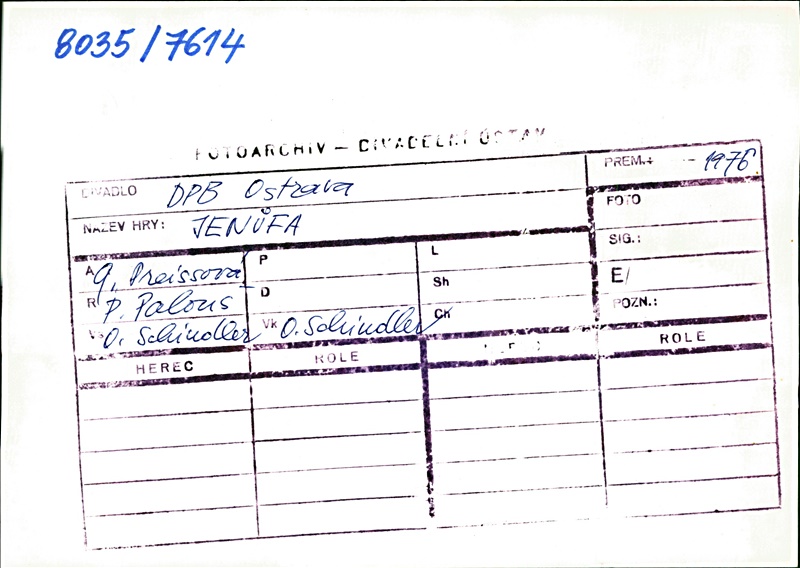 8035/7614
FOTOARCHIV – DIVADELNÍ ÚSTAV
DIVADLO DPB Ostrava
PREM.: 1976
NÁZEV HRY: JENŮFA
FOTO
SIG.:
E/
POZN.:
A G. Preissová
P
L
R P. Palouš
D
Sh
V O. Schindler
Vk O. Schindler
Ch
HEREC
ROLE
ROLE